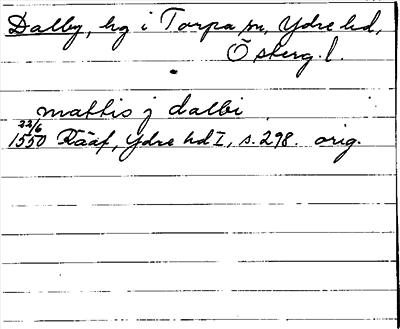 Dalby, hg i Torpa sn, Ydre hd,
Österg. l.
mattis j dalbi
22/6
1550 Rääf, Ydre hd I, s. 298. orig.